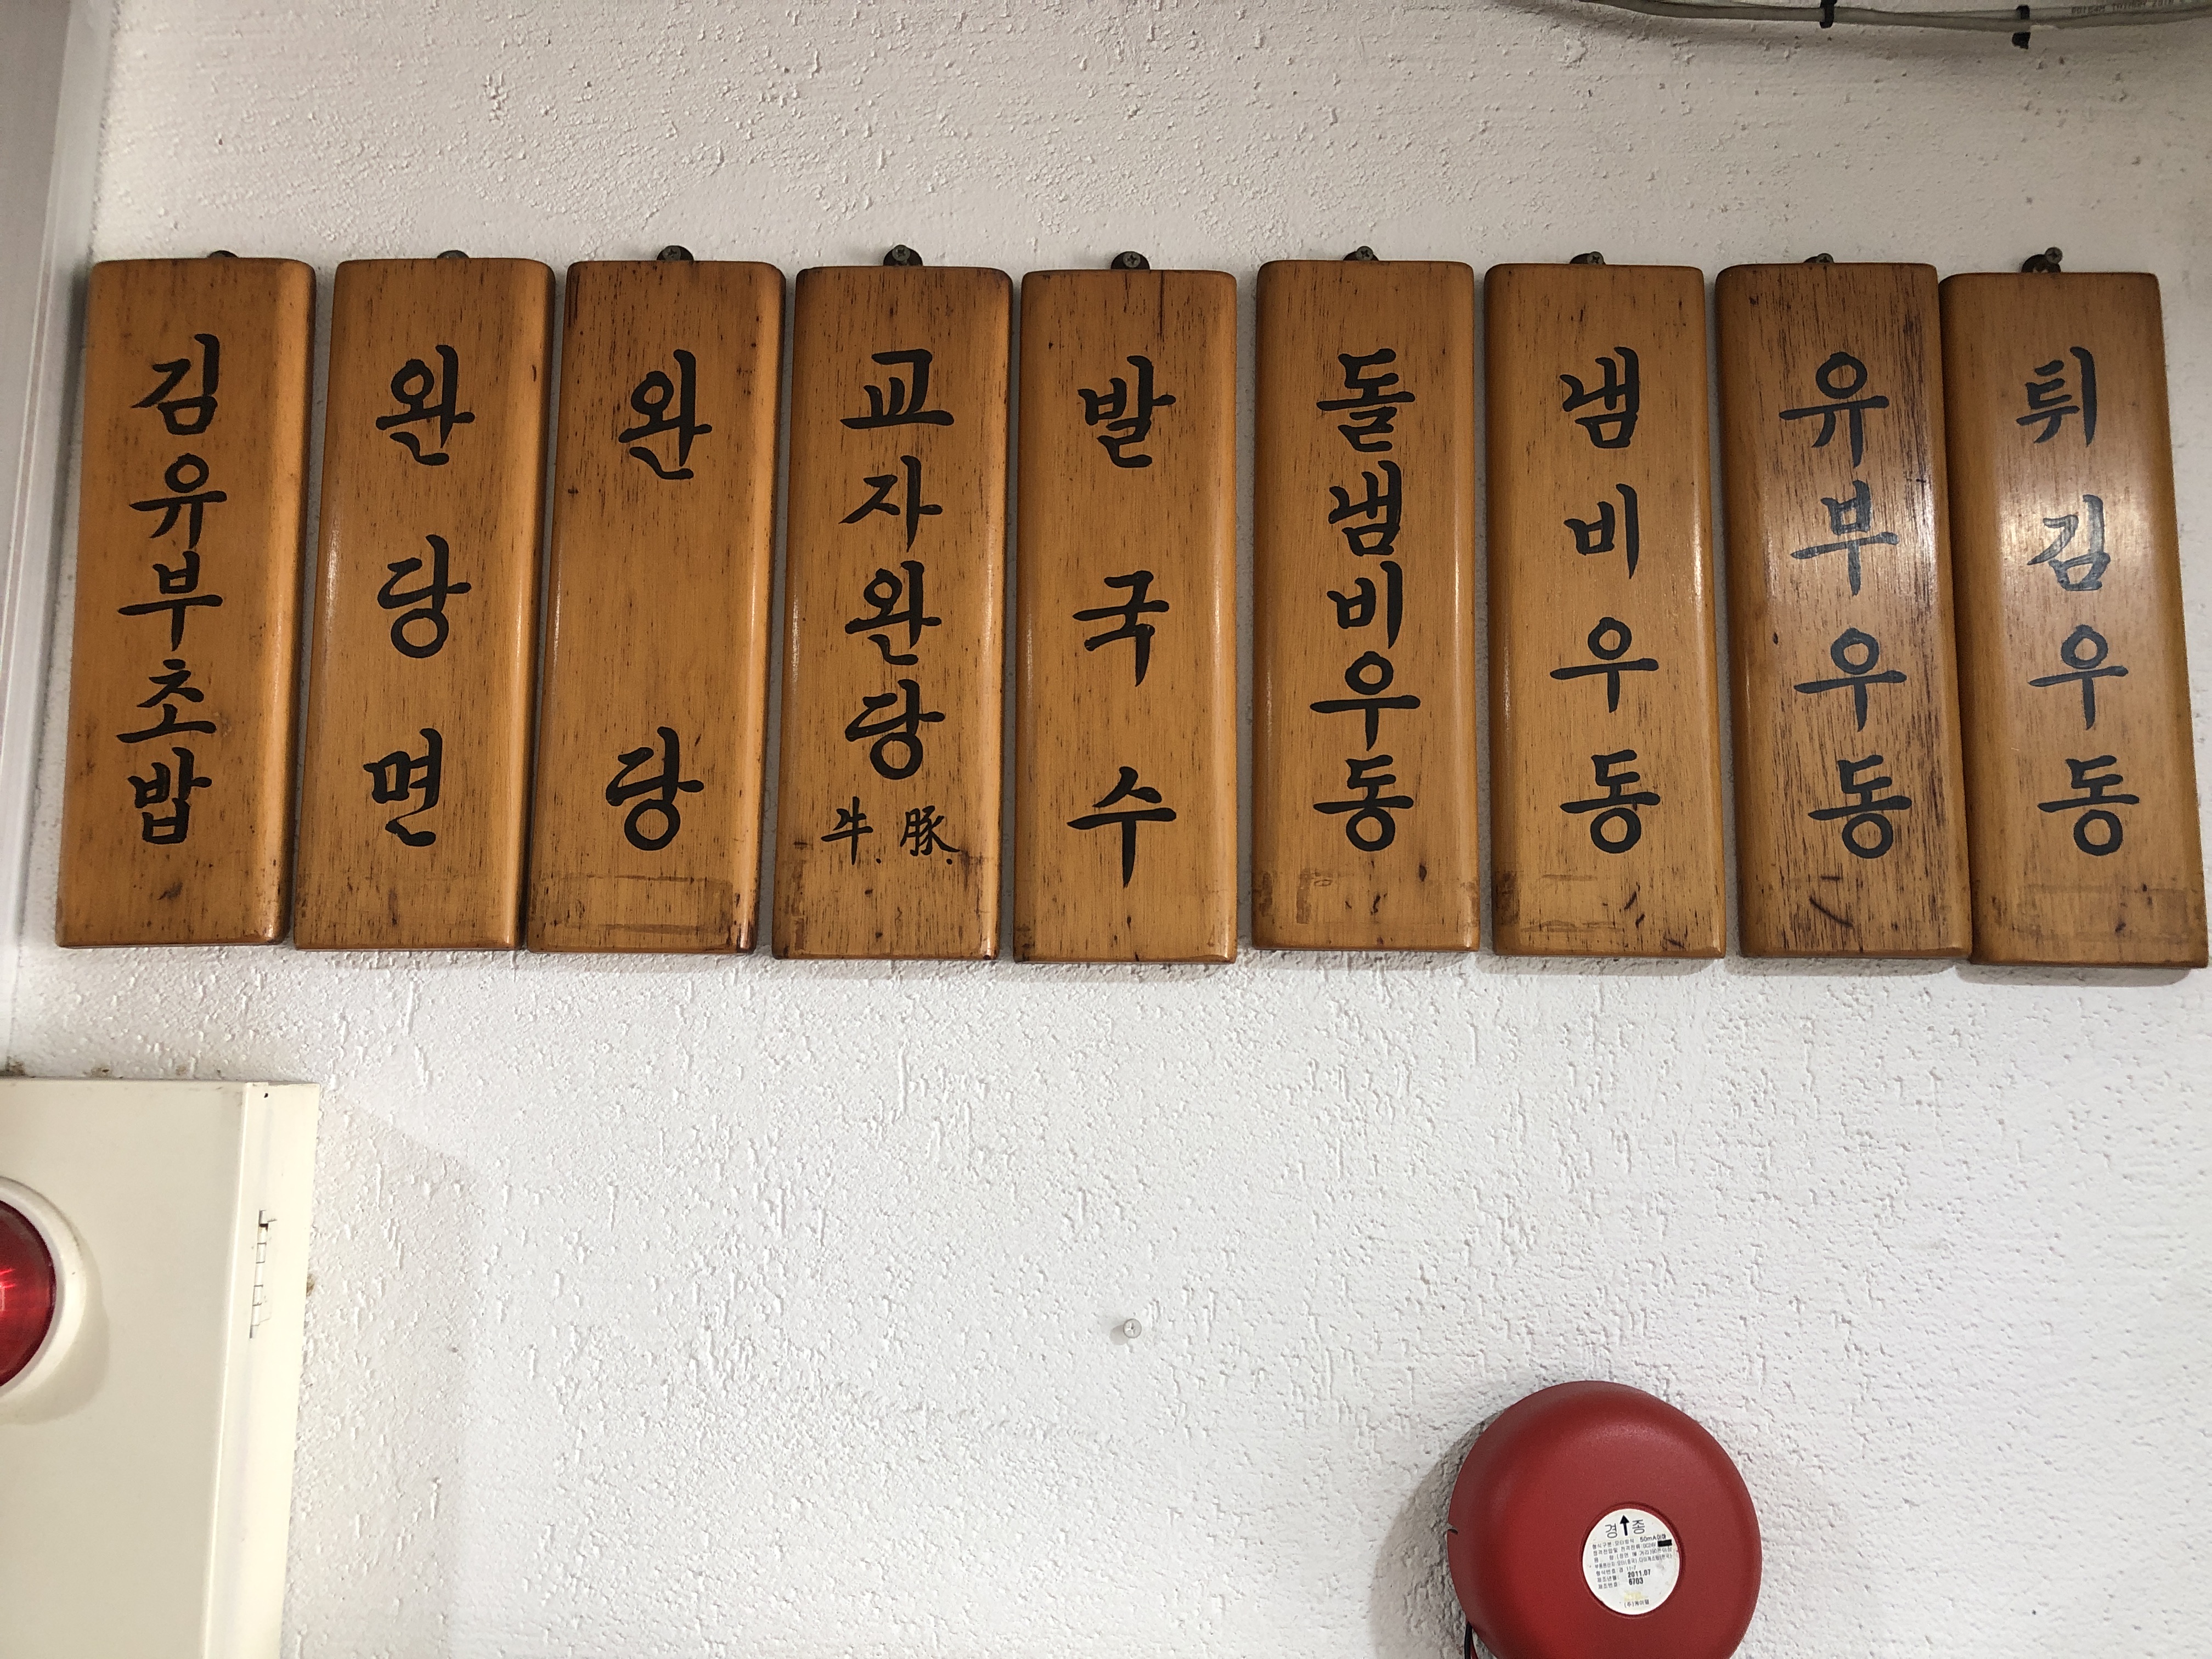 김유부초밥
완당면
완당
교자완당
牛.豚.
발국수
돌냄비우동
냄비우동
유부우동
튀김우동
경↑종
2011.07
6703